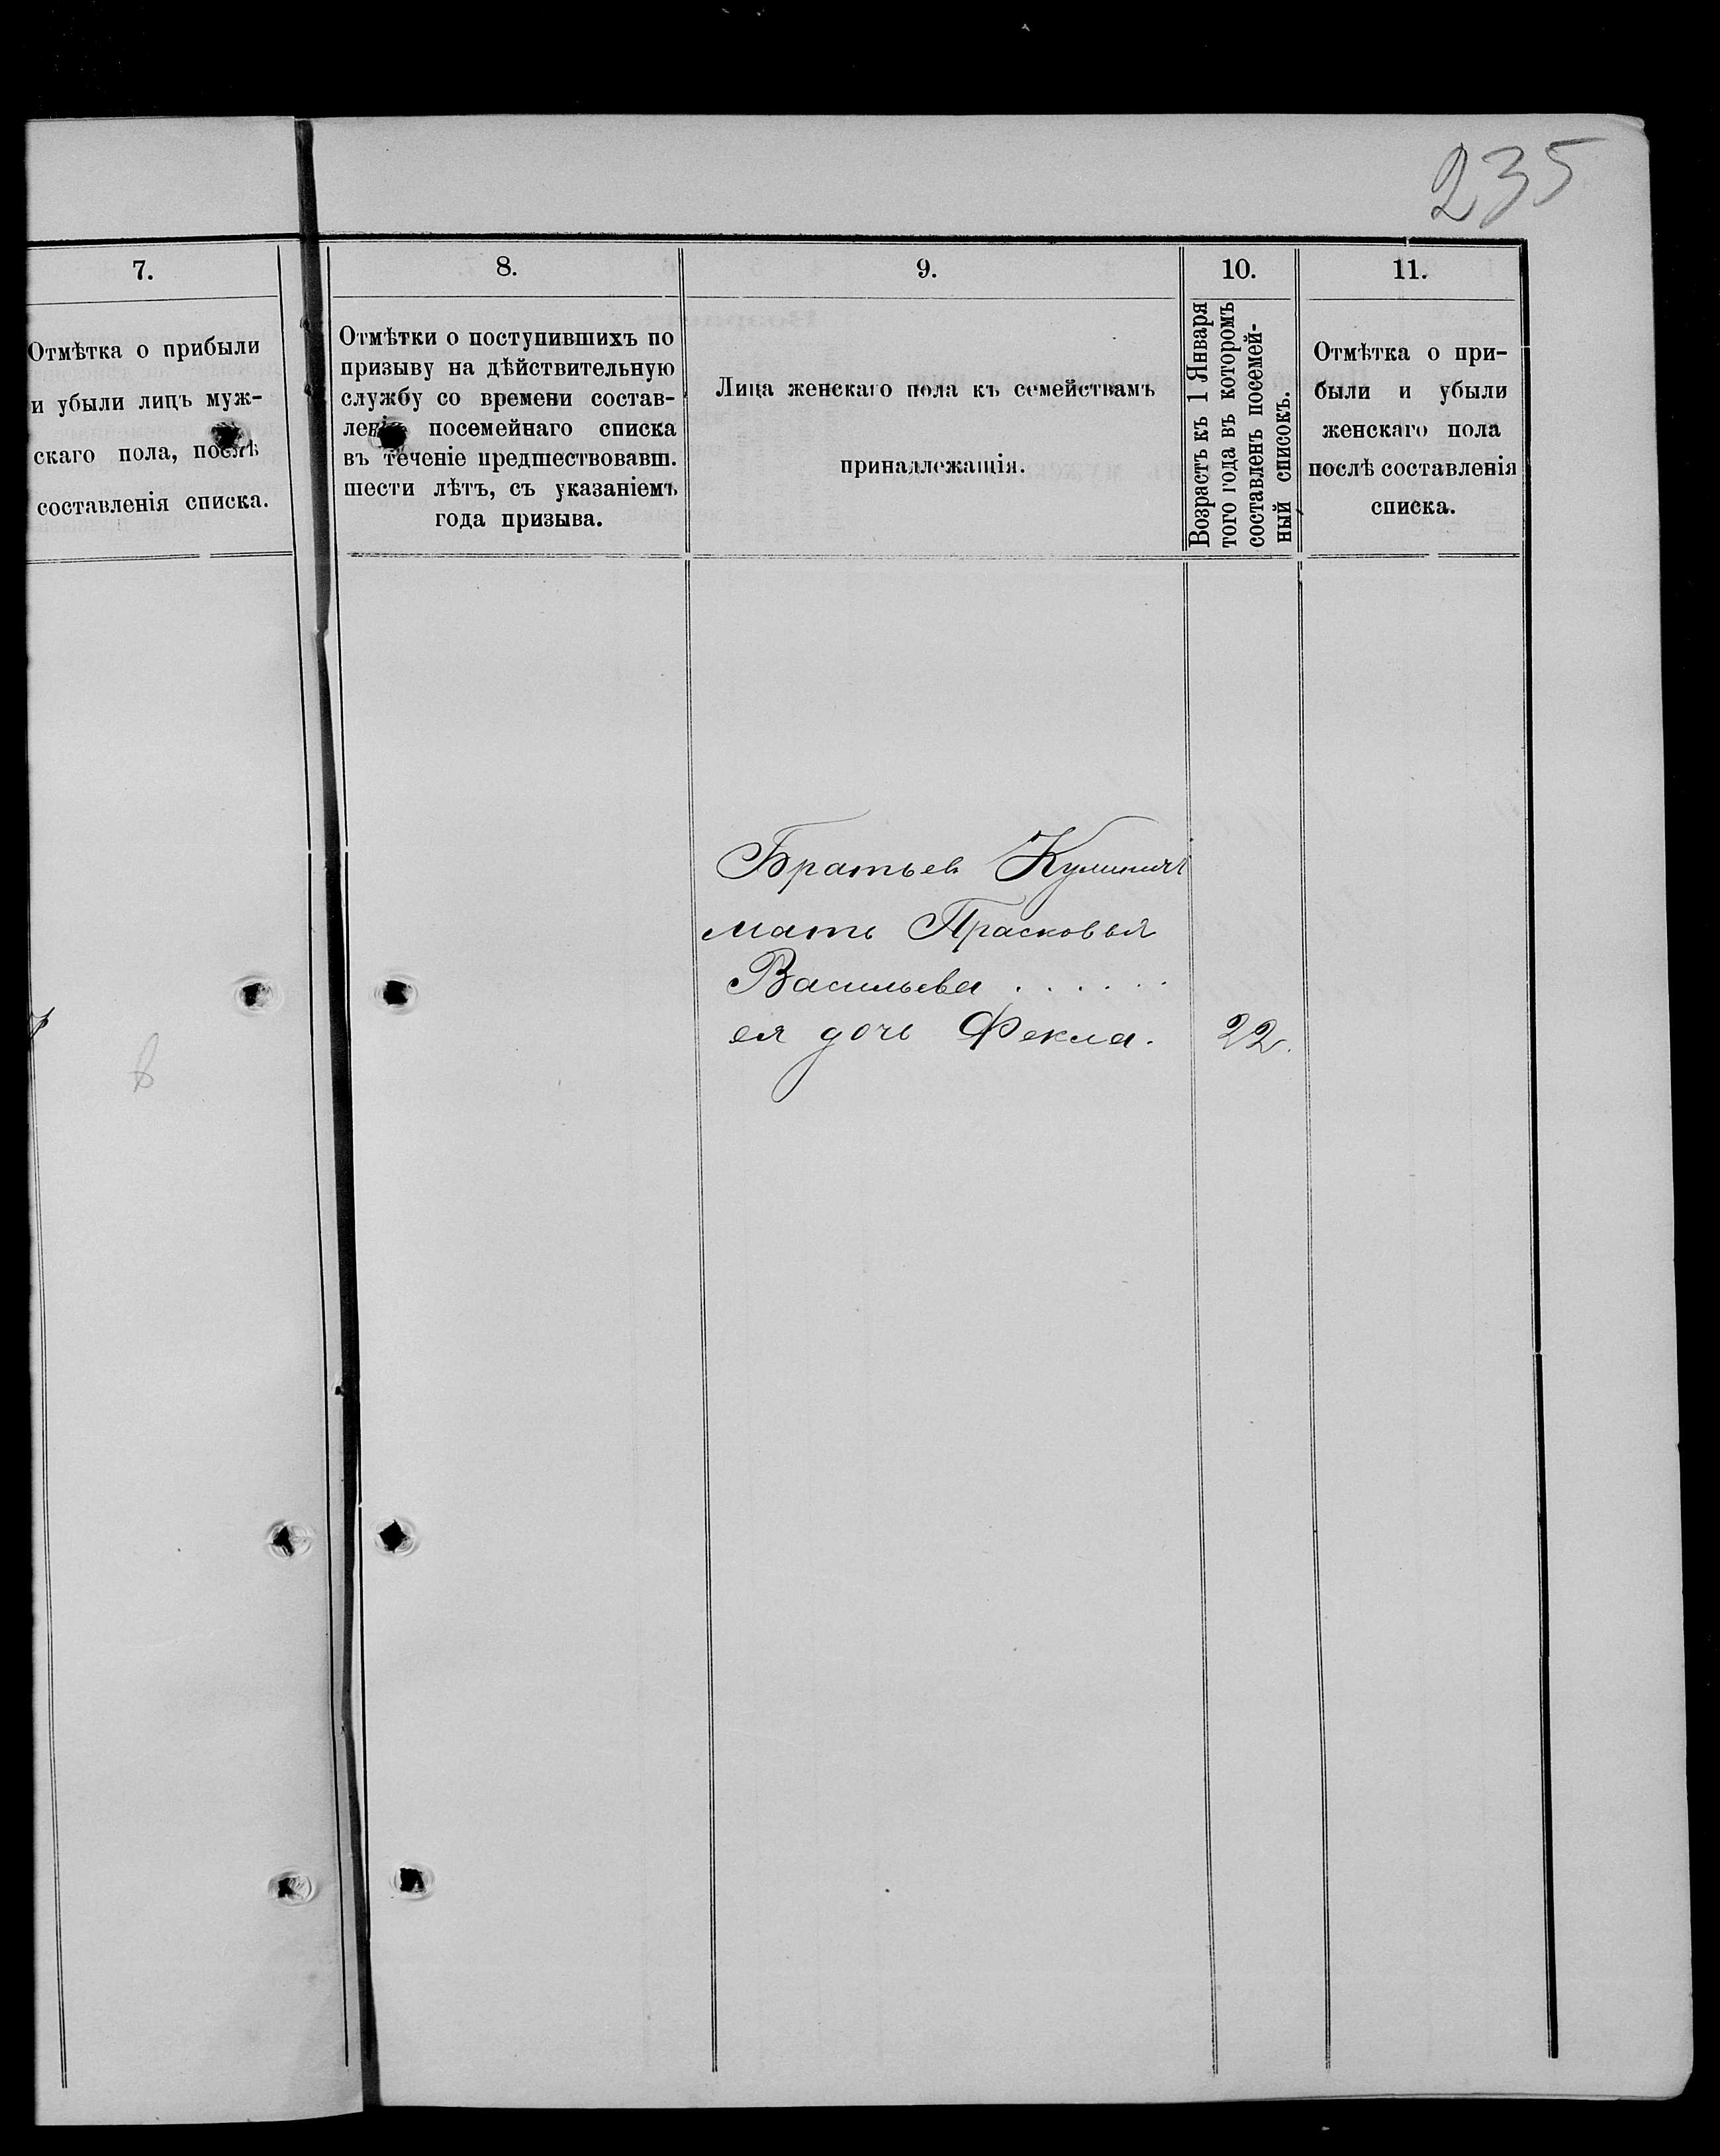 235
7.
Отмѣтка о прибыли
и убыли лицъ муж-
скаго пола, послѣ
составленія списка.
8.
Отмѣтки о поступившихъ по
призыву на дѣйствительную
службу со времени состав-
ленія посемейнаго списка
въ теченіе предшествовавш.
шести лѣтъ, съ указаніемъ
года призыва.
9.
Лица женскаго пола къ семействамъ
принадлежащія.
10.
Возрастъ къ 1 Января
того года въ которомъ
составленъ посемей-
ный списокъ.
11.
Отмѣтка о при-
были и убыли
женскаго пола
послѣ составленія
списка.
Братьев Кулинич
мать Прасковья
Васильева . . . . . .
ея дочь Фекла. 22.